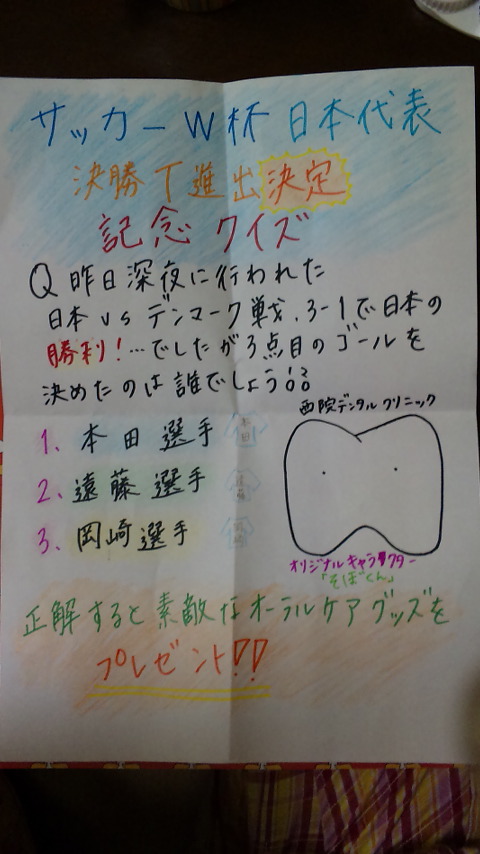 サッカーW杯 日本代表
決勝T進出決定
記念クイズ
Q 昨日深夜に行われた
日本vsデンマーク戦、3-1で日本の
勝利!…でしたが3点目のゴールを
決めたのは誰でしょう??
1、本田選手 本田
2、遠藤選手 遠藤
3、岡崎選手 岡崎
西院デンタルクリニック
オリジナルキャラクター
「そぼくん」
正解すると素敵なオーラルケアグッズを
プレゼント!!